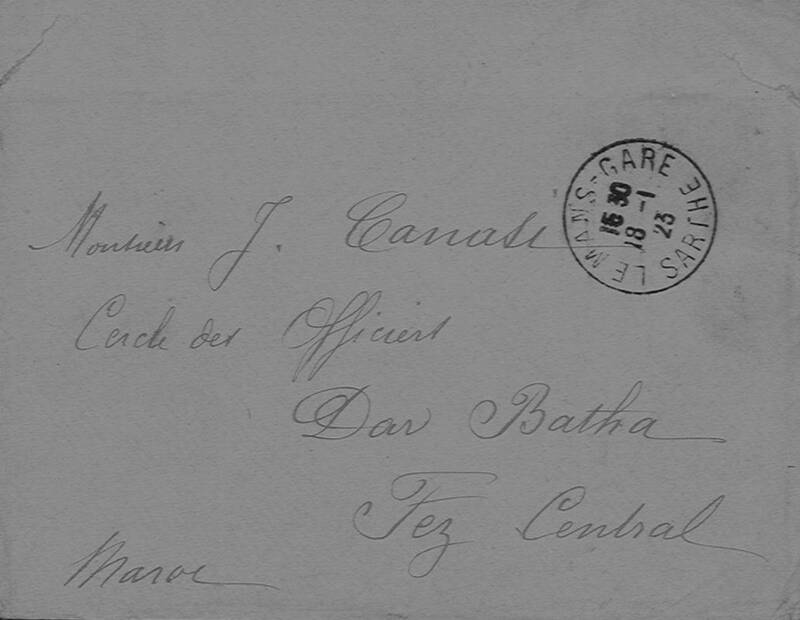 LE MANS-GARE SARTHE
15 30
18 -1
23
Monsieur J. Canale
Cercle des Officiers
Dar Batha
Fez Central
Maroc